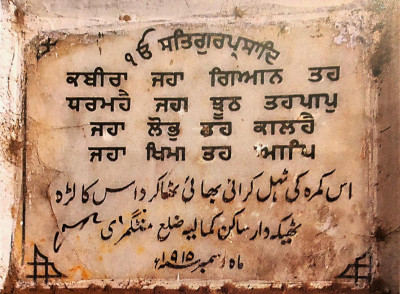 ੴ ਸਤਿਗੁਰਪ੍ਰਸਾਦਿ
ਕਬੀਰਾ ਜਹਾ ਗਿਆਨ ਤਹ
ਧਰਮਹੈ ਜਹਾ ਝੂਠ ਤਹਪਾਪੁ
ਜਹਾ ਲੋਭੁ ਤਹ ਕਾਲਹੈ
ਜਹਾ ਖਿਮਾ ਤਹ ਆਪਿ
اس کمرہ کی سٹہل کرائی بھائی ٹھاکر داس کالڑہ
ٹھیکہ دار ساکن کمالیہ ضلع منٹگمری
ماہ ۱۹۱۵